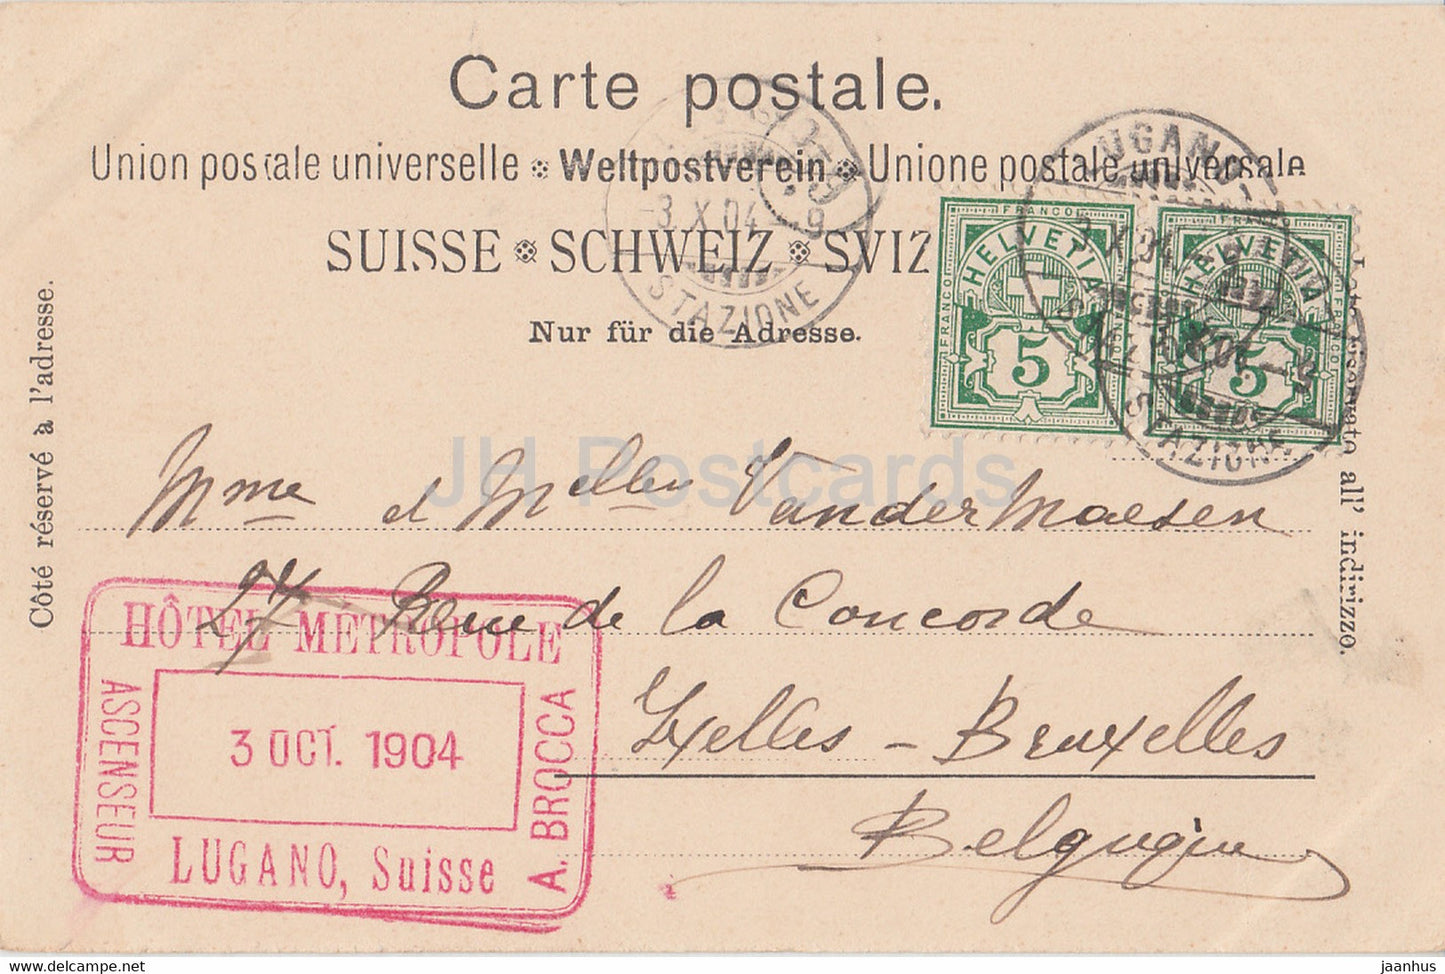 Carte postale.
Union postale universelle ※ Weltpostverein ※ Unione postale universale
SUISSE ※ SCHWEIZ ※ SVIZ
Nur für die Adresse.
Côté réservé à l'adresse.
all' indirizzo.
3.X.04 – 9
STAZIONE
FRANCO
HELVETIA
FRANCO
FRANCO
5
LUGANO
3.X.04
STAZIONE
HELVETIA
FRANCO
5
STAZIONE
JH Postcards
Mme et Melles VanderMaesen
27 Rue de la Concorde
Ixelles – Bruxelles
Belgique
HÔTEL MÉTROPOLE
ASCENSEUR
3 OCT. 1904
A. BROCCA
LUGANO, Suisse
www.delcampe.net
jaanhus